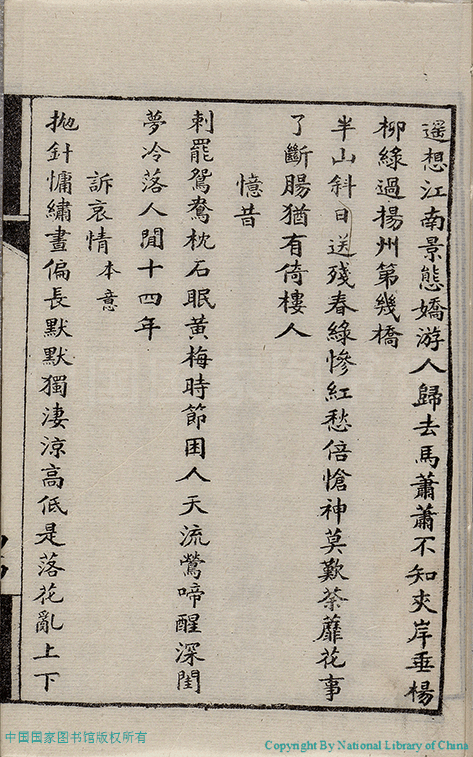 遥想江南景態嬌游人歸去馬蕭蕭不知夾岸垂楊
柳綠過揚州第幾橋
半山斜日送殘春綠慘紅愁倍愴神莫歎荼蘼花事
了斷腸猶有倚樓人
憶昔
刺罷鴛鴦枕石眠黄梅時節困人天流鶯啼醒深閨
夢冷落人間十四年
訴哀情本意
拋針慵繡晝偏長默默獨淒涼高低是落花亂上下
中国国家图书馆版权所有
Copyright By National Library of China